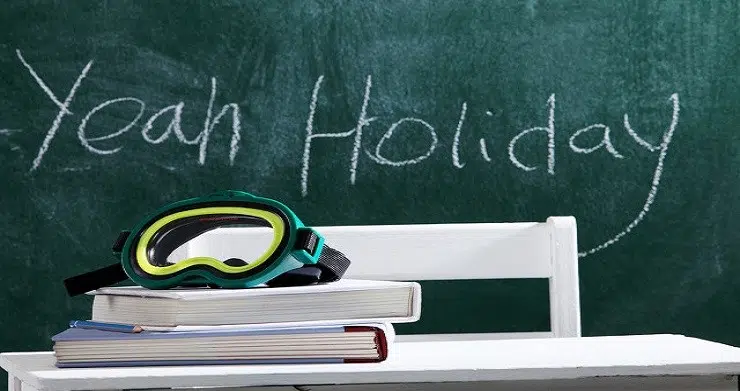 Yeah Holiday